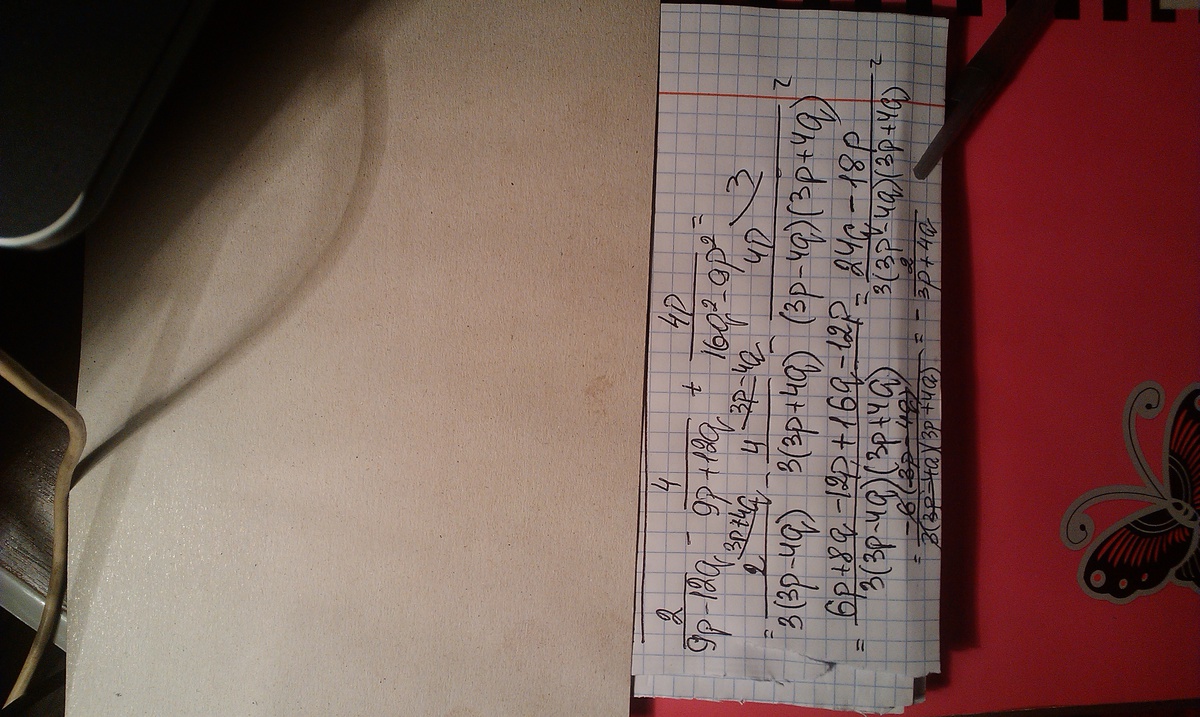 2/(9p-12q) - 4/(9p+12q) + 4p/(16q²-9p²) =
= 2 (3p+4q / 3(3p-4q) - 4 (3p-4q / 3(3p+4q) - 4p (3 / (3p-4q)(3p+4q) =
= (6p+8q-12p+16q-12p)/(3(3p-4q)(3p+4q)) = (24q-18p)/(3(3p-4q)(3p+4q)) =
= -6(3p-4q)/(3(3p-4q)(3p+4q)) = - 2/(3p+4q)